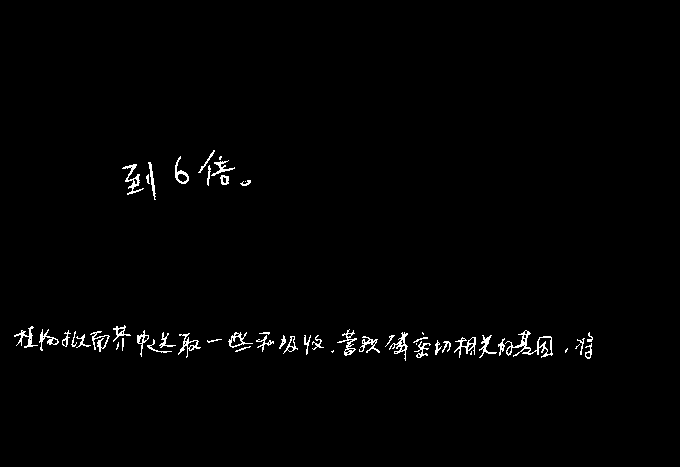 到6倍。
植物拟南芥中选取一些和吸收、蓄积磷密切相关的基因，将